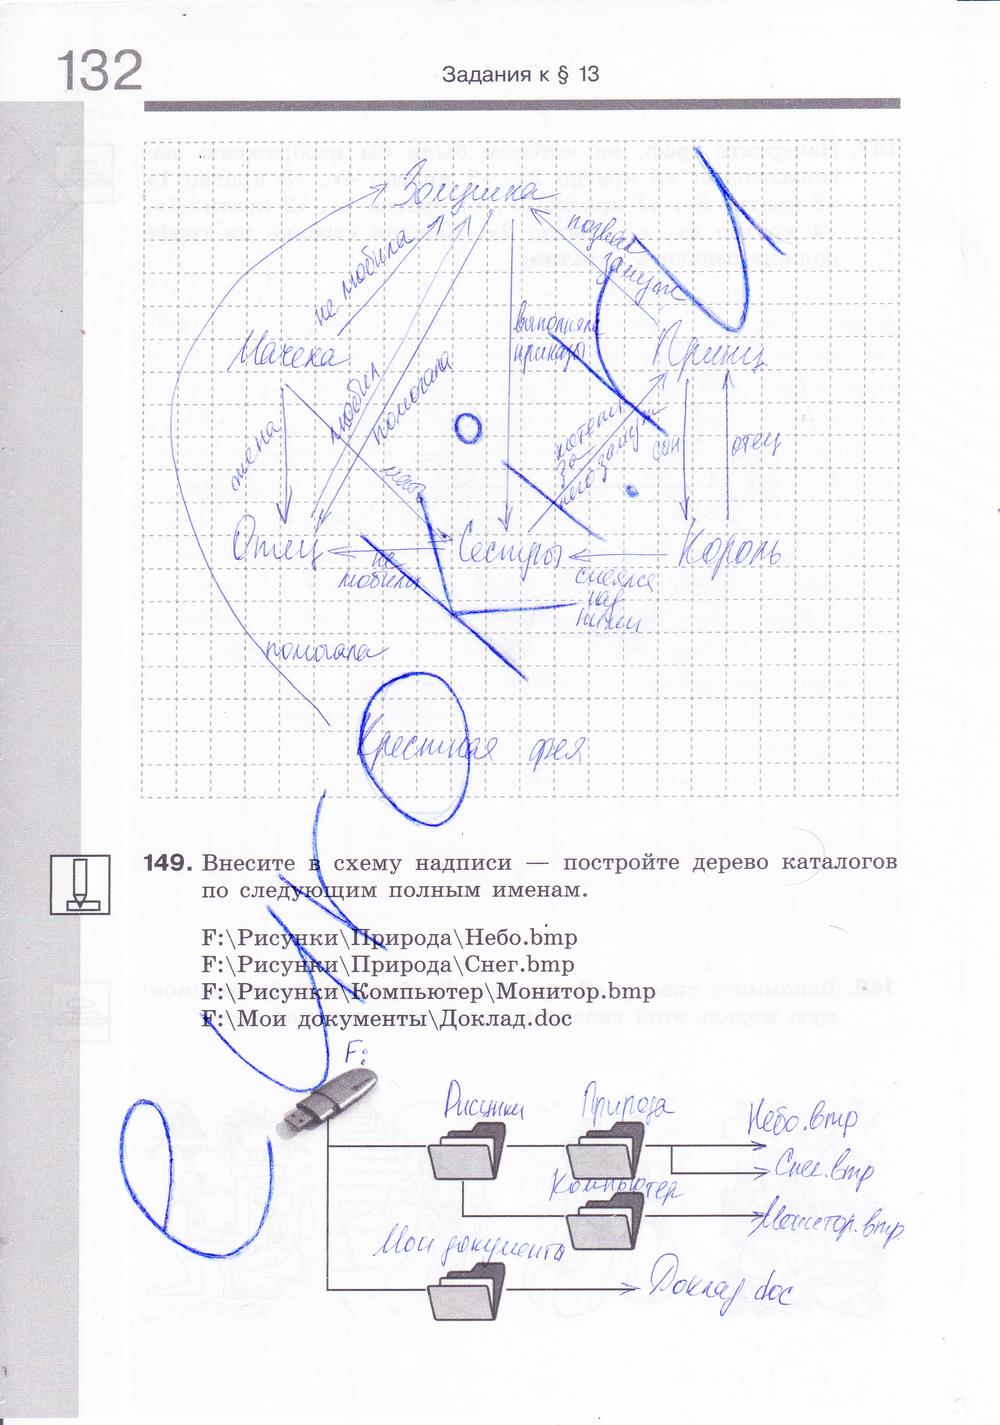 132
Задания к § 13
Золушка
не любила
позвал
замуж
Мачеха
выполняла
приказы
Принц
любил
помогала
жена
мать
хотели
за
него замуж
сын
отец
Отец
Сестры
Король
не
любили
смеялся
над
ними
помогала
Крестная фея
149. Внесите в схему надписи — постройте дерево каталогов
по следующим полным именам.
F:\Рисунки\Природа\Небо.bmp
F:\Рисунки\Природа\Снег.bmp
F:\Рисунки\Компьютер\Монитор.bmp
F:\Мои документы\Доклад.doc
F:
Рисунки
Природа
Небо.bmp
Снег.bmp
Компьютер
Монитор.bmp
Мои документы
Доклад.doc